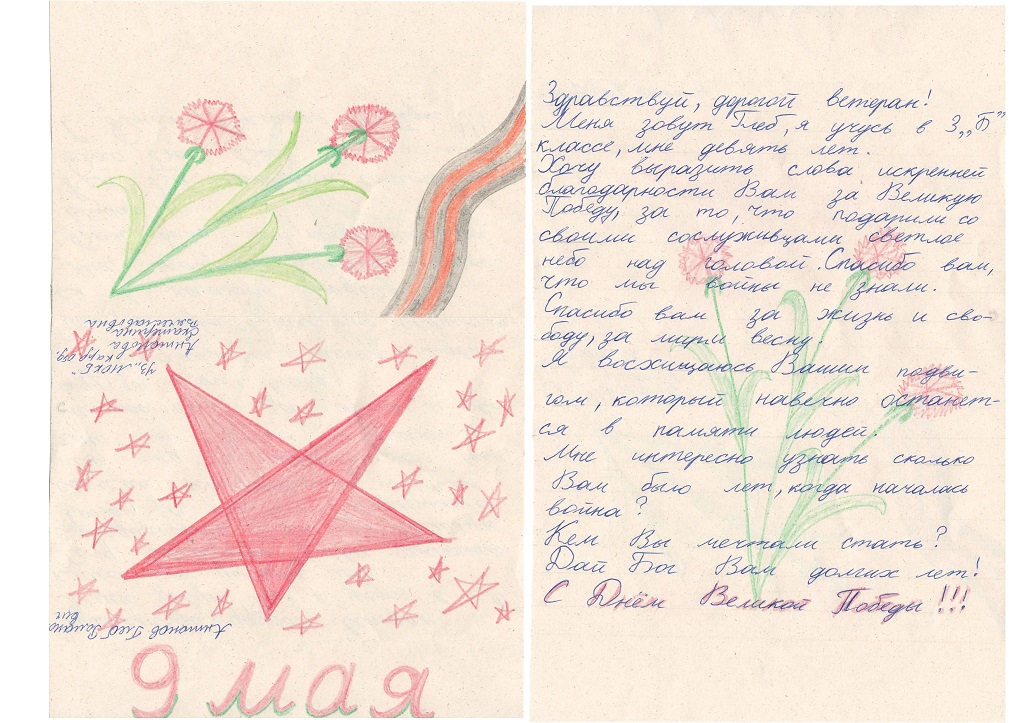 9 мая
УЗ "МОКБ"
Антонова
Екатерина
Вячеславовна
Антонов Глеб Романо
вич
Здравствуй, дорогой ветеран!
Меня зовут Глеб, я учусь в 3 „Б"
классе, мне девять лет.
Хочу выразить слова искренней
благодарности Вам за Великую
Победу, за то, что подарили со
своими сослуживцами светлое
небо над головой. Спасибо вам,
что мы войны не знали.
Спасибо вам за жизнь и сво-
боду, за мирм весну.
Я восхищаюсь Вашим подви-
гом, который навечно останет-
ся в памяти людей.
Мне интересно узнать сколько
Вам было лет, когда началась
война?
Кем Вы мечтали стать?
Дай Бог Вам долгих лет!
С Днём Великой Победы!!!